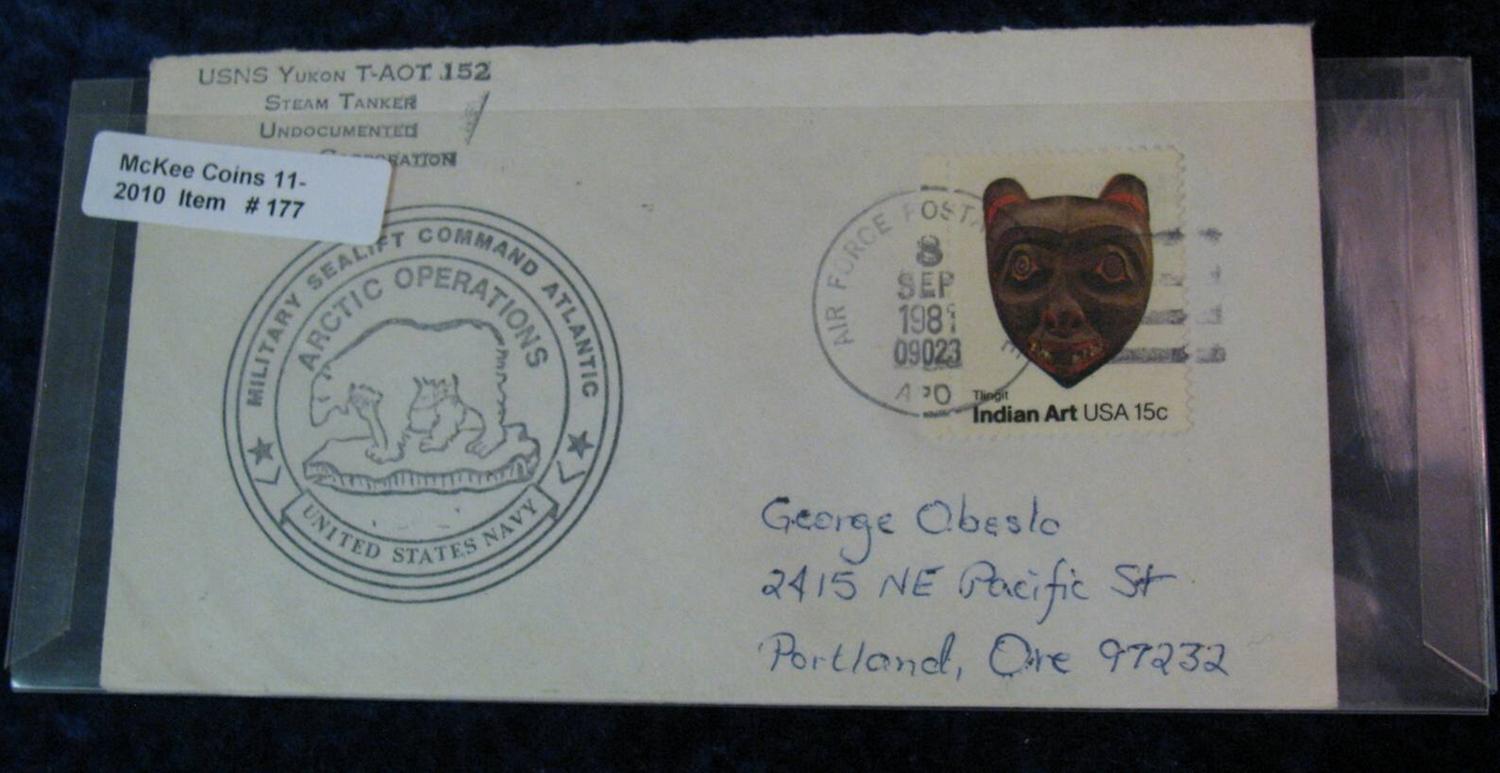 USNS YUKON T-AOT 152
STEAM TANKER
UNDOCUMENTED
CORPORATION
McKee Coins 11-
2010 Item # 177
MILITARY SEALIFT COMMAND ATLANTIC
ARCTIC OPERATIONS
UNITED STATES NAVY
AIR FORCE POSTAL
8
SEP
1981
09023
APO
Tlingit
Indian Art USA 15c
George Obeslo
2415 NE Pacific St
Portland, Ore 97232